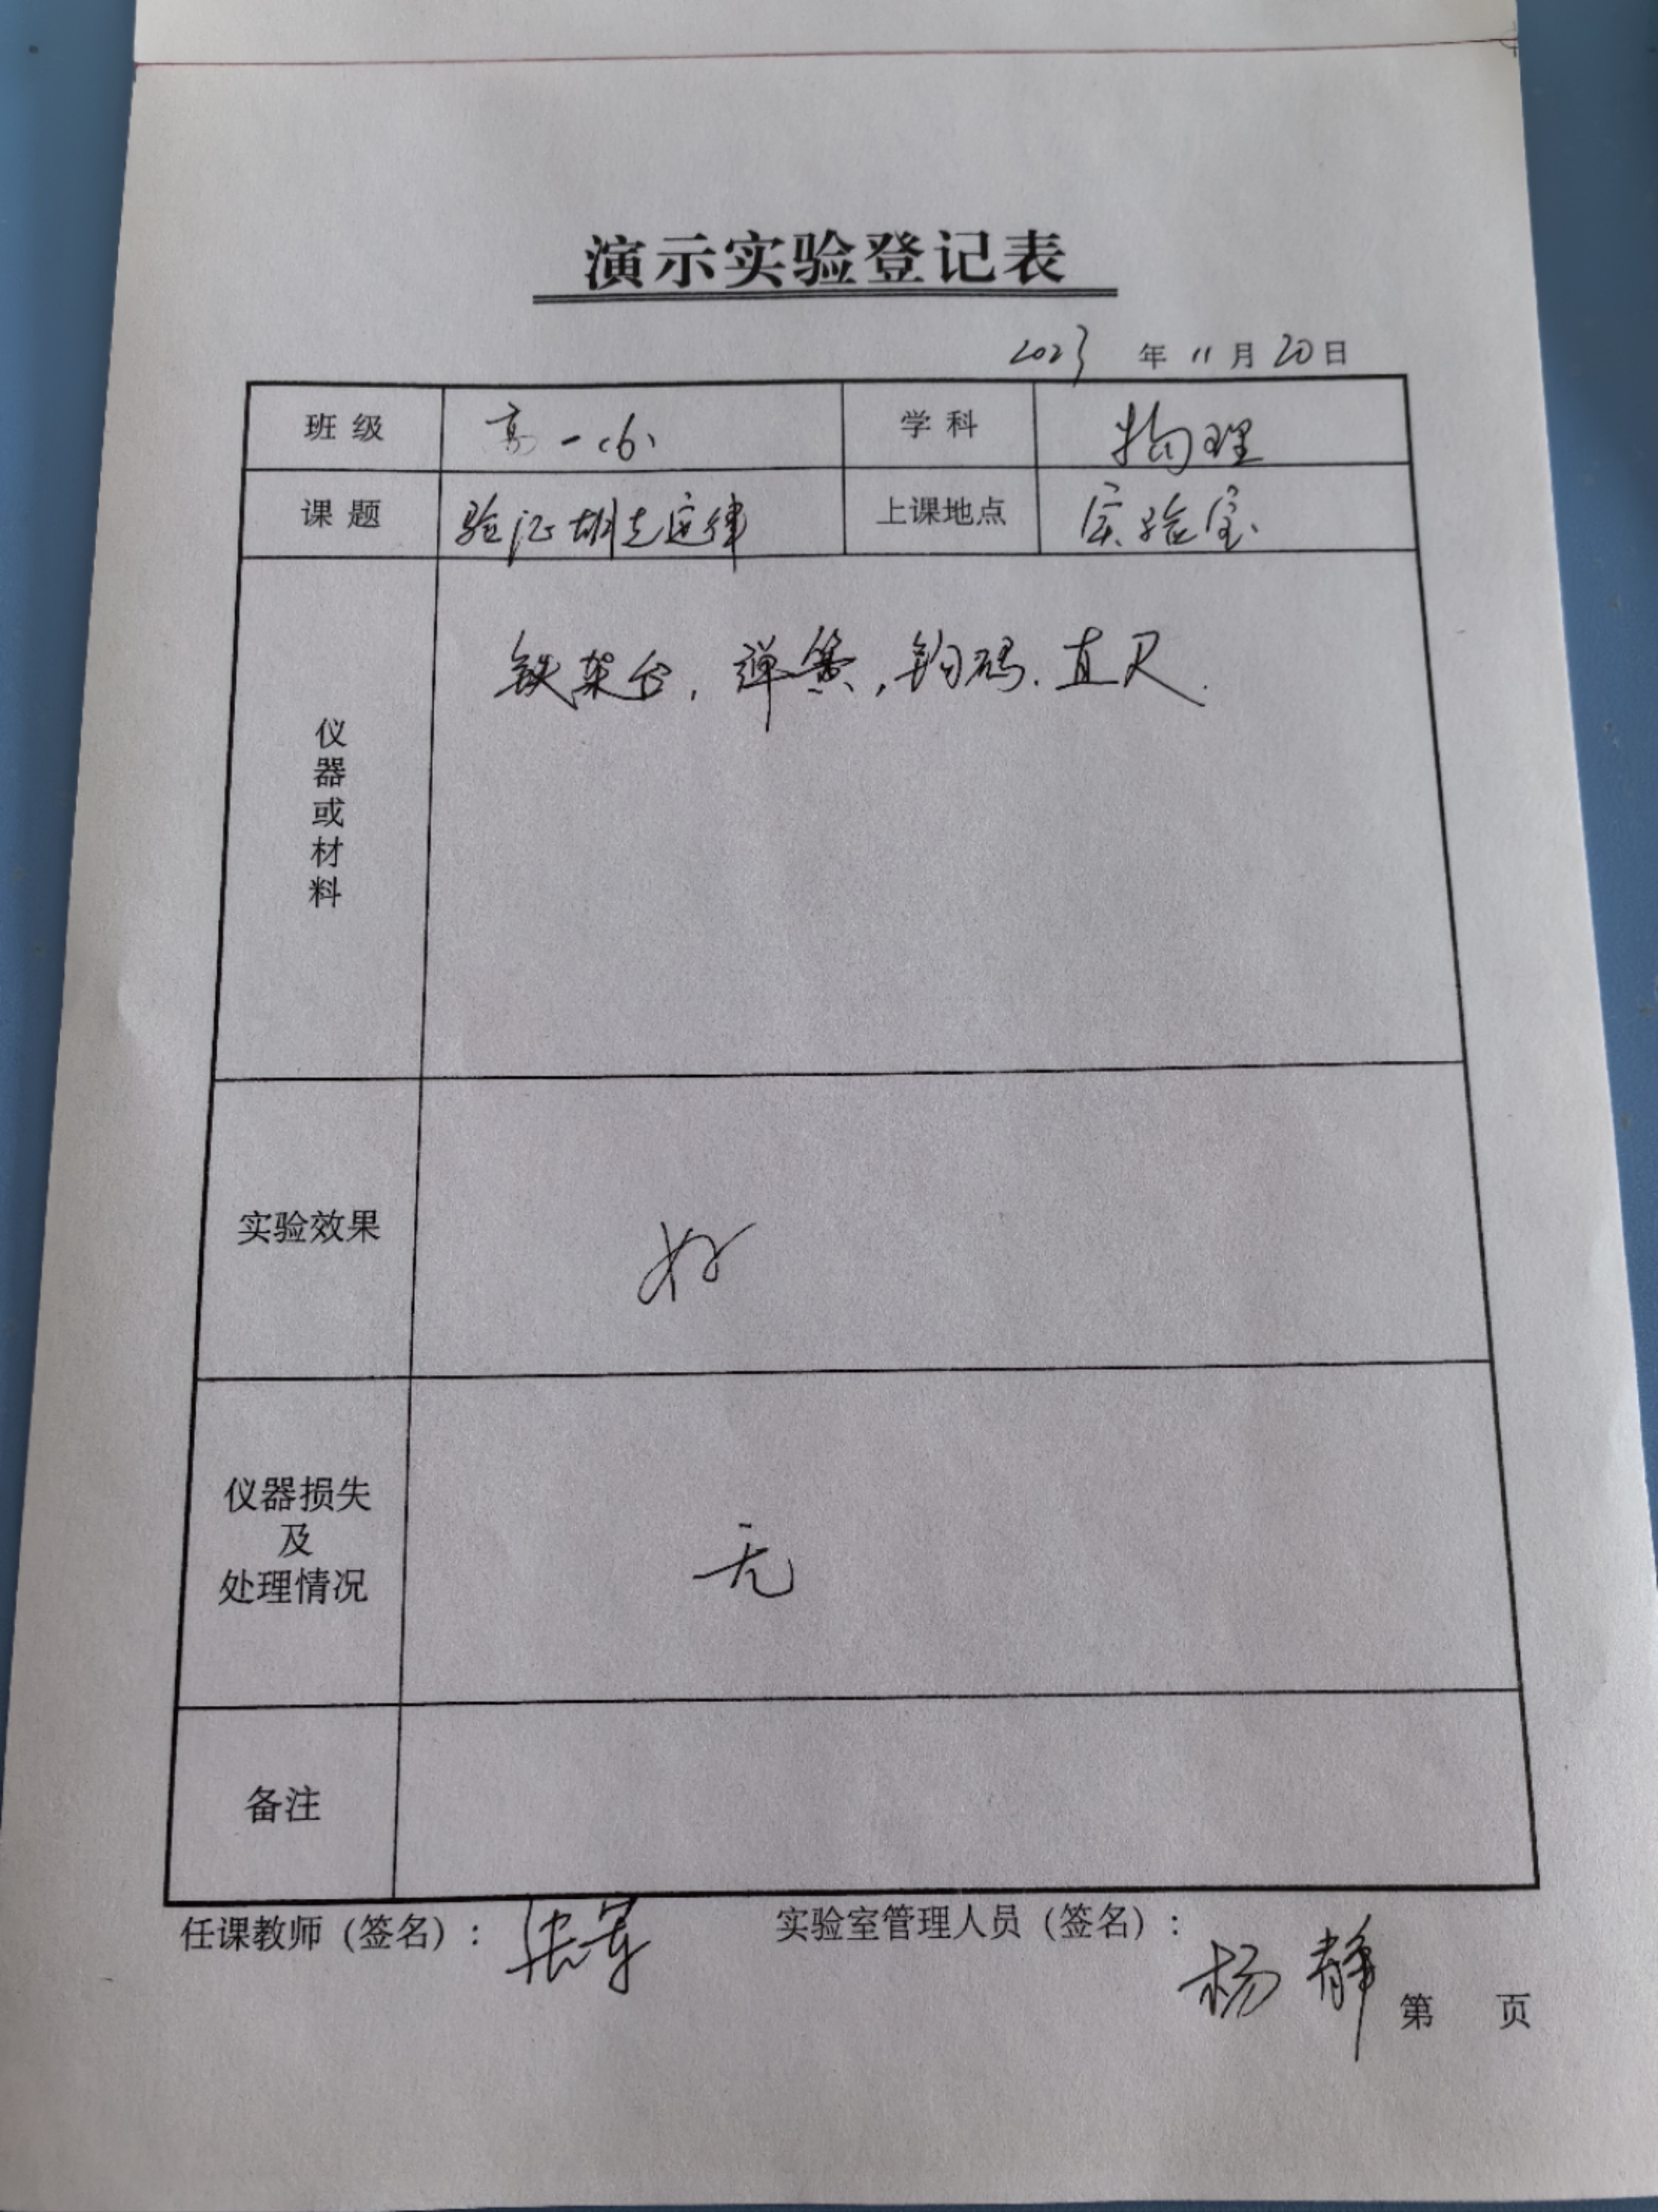 演示实验登记表
2023 年 11 月 20 日
班级 高一(6) 学科 物理
课题 验证胡克定律 上课地点 实验室
仪器或材料 铁架台, 弹簧, 钩码. 直尺.
实验效果 好
仪器损失
及
处理情况 无
备注
任课教师（签名）: 张军 实验室管理人员（签名）:
杨静
第 页